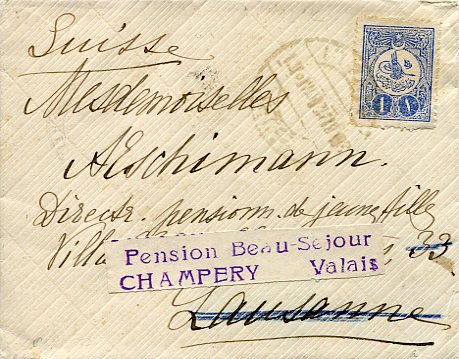 Suisse
1 1
Mesdemoiselles
AEschimann.
Directr. pensionn. de jeunes filles
Villa 33
Pension Beau-Sejour
CHAMPERY Valais
Lausanne